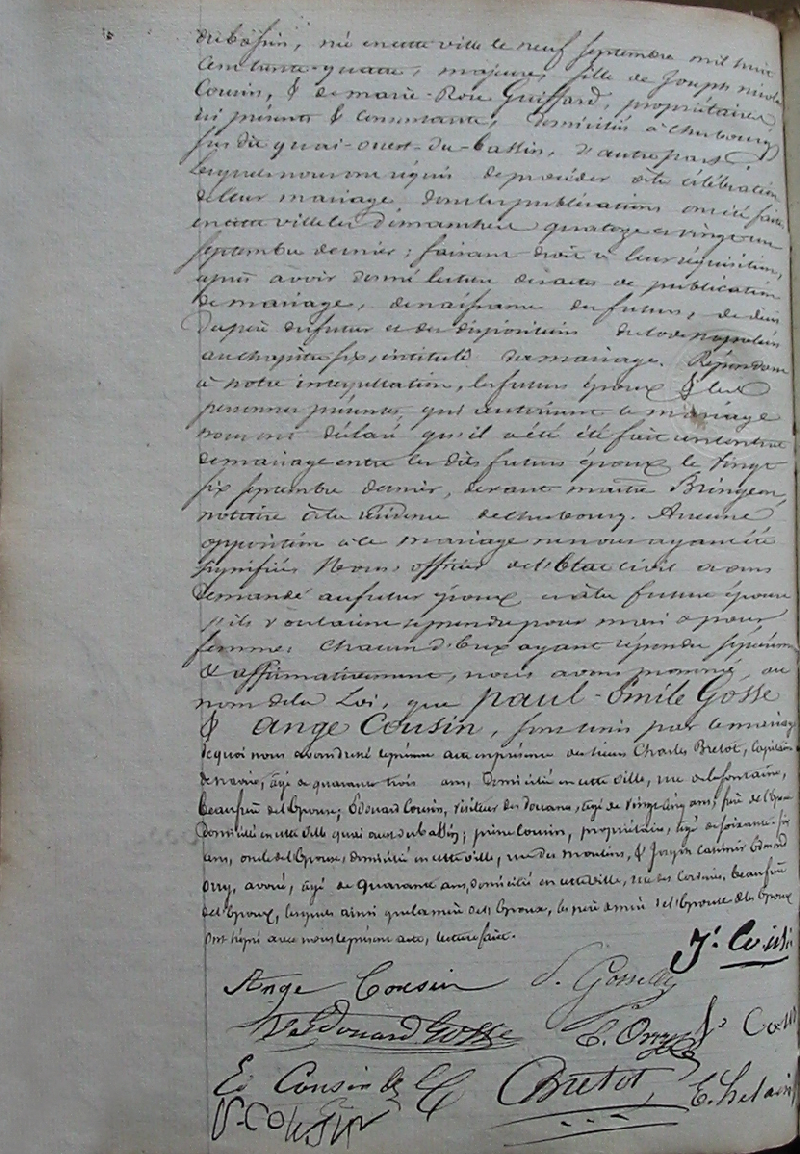 du bassin, née en cette ville le neuf septembre mil huit
cent trente-quatre, majeure, fille de Joseph Nicolas
Cousin, & de marie-Rose Guiffard, propriétaires,
ici présents & consentants, domiciliés à cherbourg
susdit quai-ouest-du-bassin, d'autre part
Lesquels nous ont requis de procéder à la célébration
de leur mariage dont les publications ont été faites
en cette ville les Dimanches quatorze et vingt un
septembre dernier: faisant droit à leur réquisition,
après avoir donné lecture des actes de publication
de mariage, de naissance des futurs, de décès
du père du futur et des dispositions du Code napoléon
au chapitre six, intitulé du mariage. Répondant
à notre interpellation, les futurs époux & les
personnes présentes qui autorisent le mariage
nous ont déclaré qu'il a été fait un contrat
de mariage entre les dits futurs époux le vingt
six septembre dernier, devant maître
notaire à la résidence de cherbourg. Aucune
opposition à ce mariage ne nous ayant été
signifiée Nous, officier de l'Etat civil avons
demandé au futur époux et à la future épouse
s'ils voulaient se prendre pour mari et pour
femme: chacun d'Eux ayant répondu séparément
& affirmativement, nous avons prononcé, au
nom de la Loi, que Paul-Emile Gosse
& Ange Cousin, sont unis par le mariage
de quoi nous avons dressé le présent acte en présence des sieurs Charles Bretot, Capitaine
de navire, âgé de quarante trois ans, domicilié en cette ville, rue de la fontaine,
beaufrère de l'Epouse; Edouard Cousin, visiteur des douanes, âgé de vingt cinq ans, frère de l'Epouse
domicilié en cette ville quai ouest du bassin; Cousin, propriétaire, âgé de soixante-six
ans, oncle de l'Epouse, domicilié en cette ville, rue des moulins, & Joseph Casimir Edmond
Orry, avoué, âgé de quarante ans, domicilié en cette ville, rue des Corderies, beaufrère
de l'Epoux, lesquels ainsi que la mère de l'Epoux, les père & mère de l'Epouse & les Epoux
ont signé avec nous le présent acte, lecture faite.
J. Cousin
Ange Cousin
Edouard Gosse E. Orry
Ed Cousin Bretot
V. Cousin